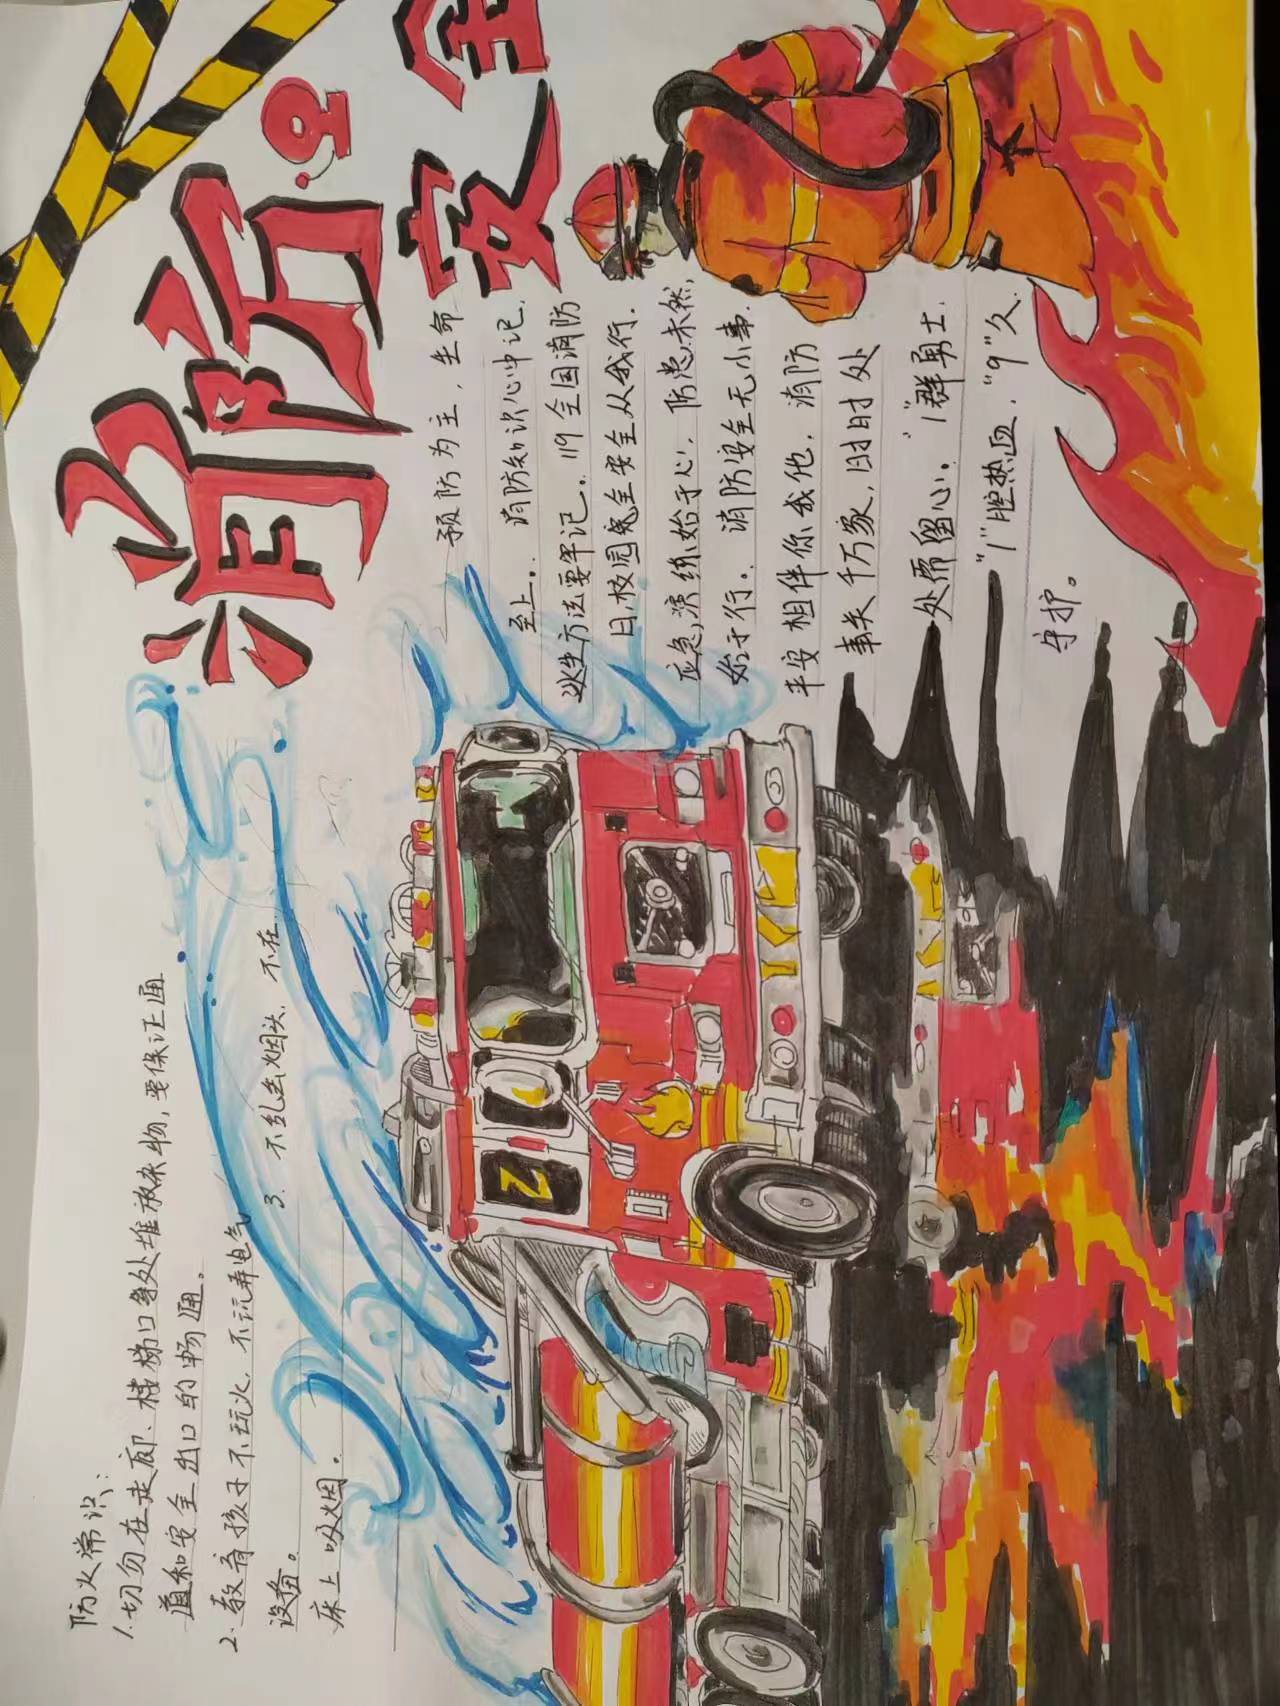 消防安全
防火常识:
1.切勿在走廊、楼梯口等处堆放杂物,要保证通
道和安全出口的畅通。
2.教育孩子不玩火、不玩弄电气
设备。
3、不乱丢烟头、不在
床上吸烟。
预防为主,生命
至上。消防知识心中记.
逃生方法要牢记。119全国消防
日,校园安全从我行.
应急演练始于心,防患未然,
始于行。消防安全无小事.
平安相伴你我他.消防
事关千万家,时时处
处需留心。"1"群勇士.
"1"腔热血."9"久
守护。
Z